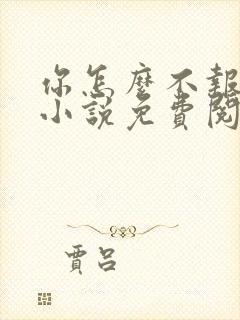 你怎麼不報
小說免費閱
賈呂